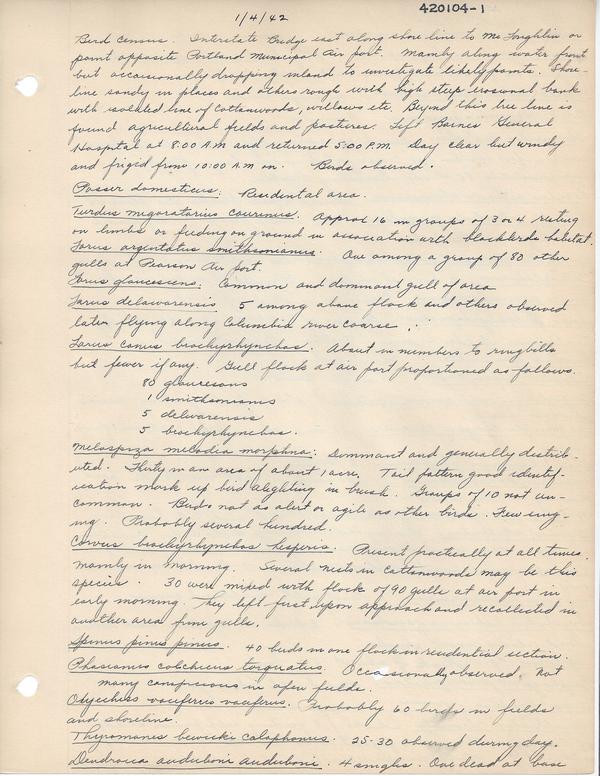 1/4/42
420104-1
Bird census. Interstate Bridge east along shore line to McLoughlin or
point opposite Portland Municipal Air port. Mainly along water front
but occasionally dropping inland to investigate likely points. Shore-
line sandy in places and others rough with high steep erosional bank
with isolated line of Cottonwoods, willows etc. Beyond this tree line is
found agricultural fields and pastures. Left Barnes General
Hospital at 8:00 A.M and returned 5:00 P.M. Day clear but windy
and frigid from 10:00 A.M on. Birds observed.
Passer domesticus: Residental area.
Turdus migoratarius caurinus. Approx 16 in groups of 3 or 4 resting
on limbs or feeding on ground in association with blackbirds habitat.
Larus argentatus smithsonianus. One among a group of 80 other
gulls at Pearson Air port.
Larus glaucescens: Common and dominant gull of area
Larus delawarensis 5 among above flock and others observed
later flying along Columbia river coarse.
Larus canus brachyrhynchos. About in numbers to ringbills
but fewer if any. Gull flock at air port proportioned as follows.
80 glaucesens
1 smithsonianus
5 delwarensis
5 brachyrhynchos.
Melospiza melodia morphna: Dominant and generally distrib-
uted. Thirty in an area of about 1 acre. Tail pattern good identif-
ication mark up bird alighting in brush. Groups of 10 not un-
common. Birds not as alert or agile as other birds. Few sing-
ing. Probably several hundred.
Corvus brachyrhynchos hesperis. Present practically at all times
mainly in morning. Several nests in Cottonwoods may be this
species. 30 were mixed with flock of 90 gulls at air port in
early morning. They left first upon approach and recollected in
another area from gulls.
Spinus pinus pinus. 40 birds in one flock in residential section.
Phasianus colchicus torquatus. Occasionally observed. Not
many conspicious in open fields.
Oxyechus vociferus vociferus. Probably 60 birds in fields
and shoreline.
Thyromanes bewicki calophonus. 25-30 observed during day.
Dendroica auduboni auduboni. 4 singles. One dead at base